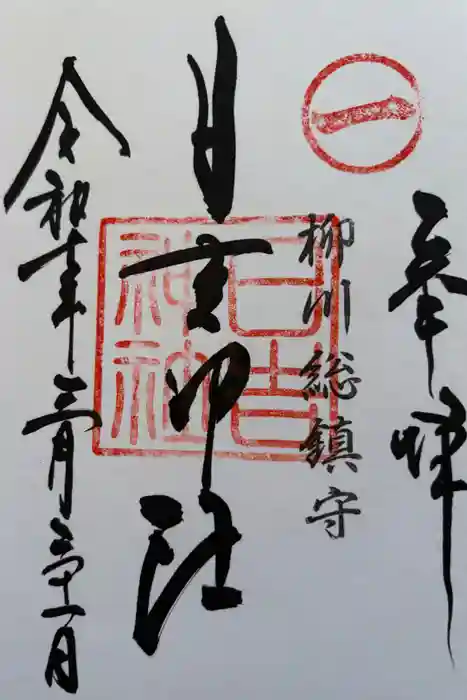 奉拝
一
柳川総鎮守
日吉神社
日吉神社
令和七年三月